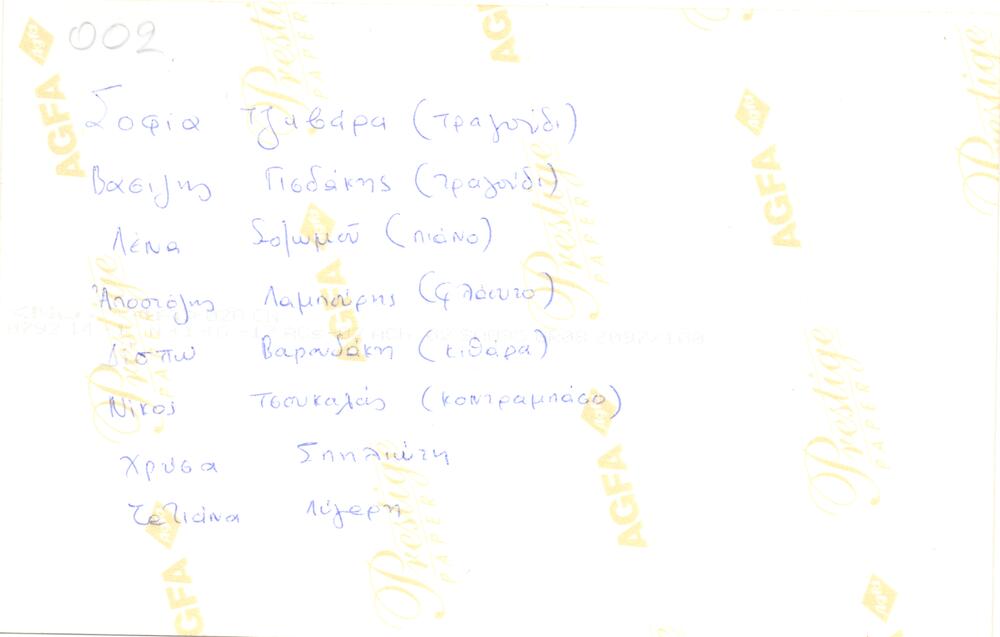 002
Σοφία Τζαβάρα (τραγούδι)
Βασίλης Γισδάκης (τραγούδι)
Λένα Σολωμού (πιάνο)
Ἀποστόλης Λαμπούρης (φλάουτο)
Δέσπω Βαρουδάκη (κιθάρα)
Νίκος Τσουκαλάς (κοντραμπάσο)
Χρύσα Σπηλιώτη
Τετιάνα Λύγερη
AGFA
Prestige
PAPER